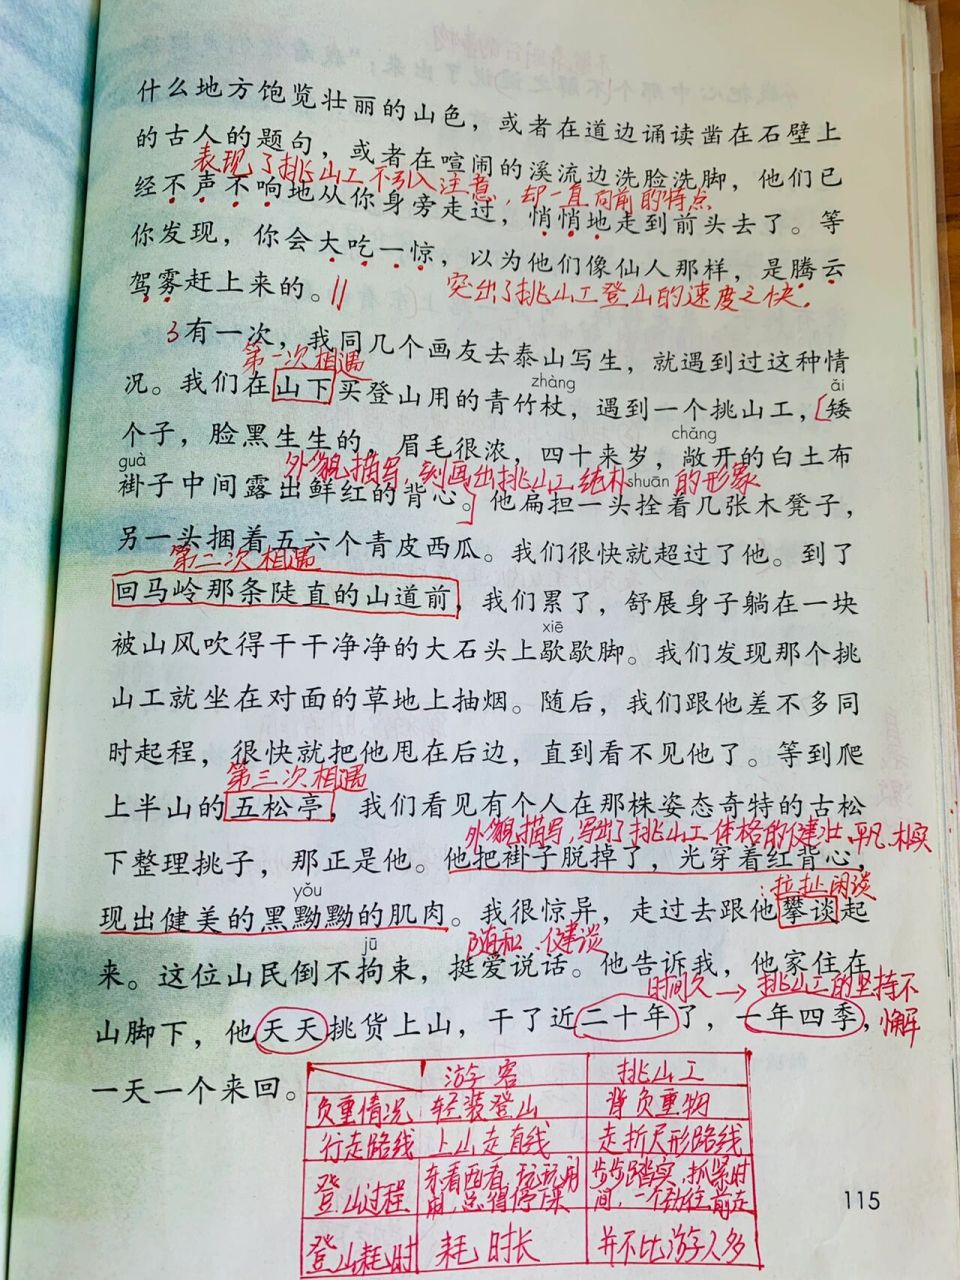 什么地方饱览壮丽的山色，或者在道边诵读凿在石壁上
的古人的题句，或者在喧闹的溪流边洗脸洗脚，他们已
表现了挑山工不引人注意，却一直向前的特点
经不声不响地从你身旁走过，悄悄地走到前头去了。等
你发现，你会大吃一惊，以为他们像仙人那样，是腾云
驾雾赶上来的。
突出了挑山工登山的速度之快.
3有一次，我同几个画友去泰山写生，就遇到过这种情
第一次相遇
zhàng
ǎi
况。我们在山下买登山用的青竹杖，遇到一个挑山工，矮
chǎng
个子，脸黑生生的，眉毛很浓，四十来岁，敞开的白土布
guà
外貌描写，刻画出挑山工纯朴的形象
shuān
褂子中间露出鲜红的背心。他扁担一头拴着几张木凳子，
另一头捆着五六个青皮西瓜。我们很快就超过了他。到了
第二次相遇
回马岭那条陡直的山道前，我们累了，舒展身子躺在一块
xiē
被山风吹得干干净净的大石头上歇歇脚。我们发现那个挑
山工就坐在对面的草地上抽烟。随后，我们跟他差不多同
时起程，很快就把他甩在后边，直到看不见他了。等到爬
第三次相遇
上半山的五松亭，我们看见有个人在那株姿态奇特的古松
外貌描写，写出了挑山工体格的健壮、平凡、朴实
下整理挑子，那正是他。他把褂子脱掉了，光穿着红背心，
yǒu
：拉扯闲谈
现出健美的黑黝黝的肌肉。我很惊异，走过去跟他攀谈起
jū
随和、健谈
来。这位山民倒不拘束，挺爱说话。他告诉我，他家住在
时间久→挑山工的坚持不
山脚下，他天天挑货上山，干了近二十年了，一年四季，
懈
一天一个来回。
游客 挑山工
负重情况 轻装登山 背负重物
行走路线 上山走直线 走折尺形路线
登山过程 东看西看，玩玩闹 步步踏实，抓紧时
闹，总得停下来 间，一个劲往前走
登山耗时 耗时长 并不比游人多
115